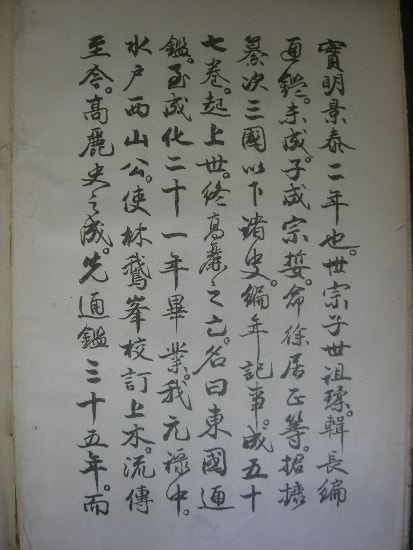 實明景泰二年也。世宗子世祖瑈。輯長編
通鑑。未成。子成宗娎。命徐居正等。捃摭
纂次三國以下諸史。編年記事。成五十
七卷。起上世。終高麗之亡。名曰東國通
鑑。至成化二十一年畢業。我元祿中。
水戶西山公。使林鵞峯校訂上木。流傳
至今。高麗史之成。先通鑑三十五年。而